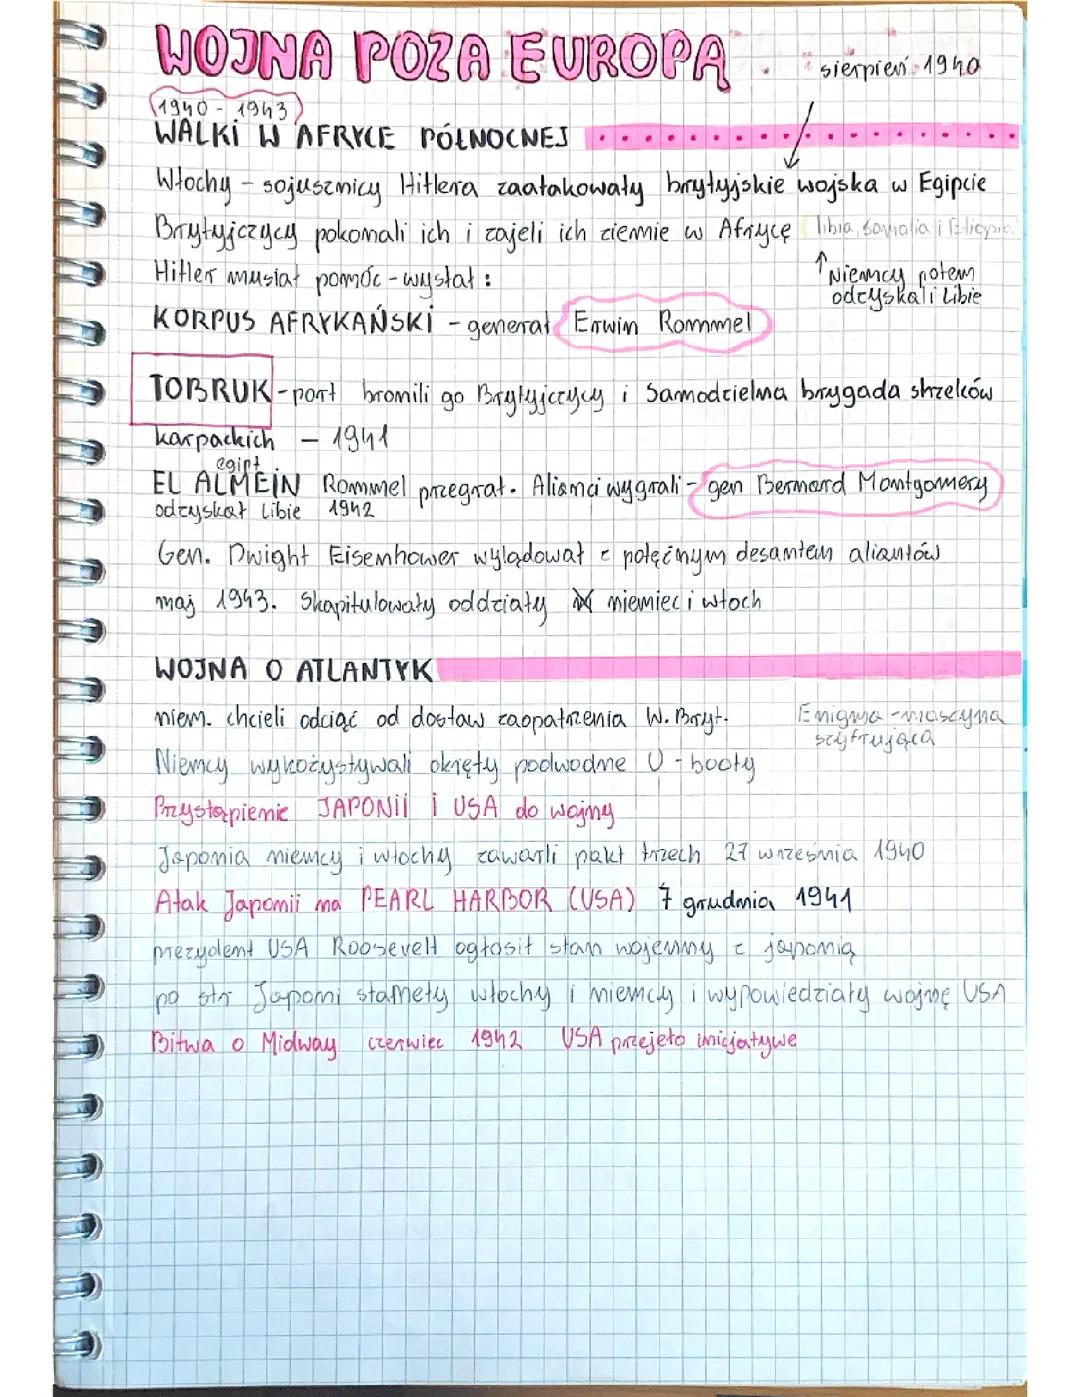 WOJNA POZA EUROPĄ
sierpień 1940
1940 - 1943
WALKi W AFRYCE PÓŁNOCNEJ
Włochy - sojusznicy Hitlera zaatakowały brytyjskie wojska w Egipcie
Brytyjczycy pokonali ich i zajeli ich ziemie w Afryce libia, somalia i Etiopia.
Hitler musiał pomóc - wysłał :
Niemcy potem
odzyskali Libie
KORPUS AFRYKAŃSKi - generał Erwin Rommel
TOBRUK - port bronili go Brytyjczycy i Samodzielna brygada strzelców
karpackich - 1941
egipt
EL ALMEiN Rommel przegrał. Alianci wygrali - gen Bernard Montgomery
odzyskał Libie 1942
Gen. Dwight Eisenhower wylądował z potężnym desantem aliantów
maj 1943. Skapitulowały oddziały niemiec i włoch
WOJNA O ATLANTYK
niem. chcieli odciąć od dostaw zaopatrzenia W. Bryt.
Enigma - maszyna
szyfrująca
Niemcy wykożystywali okręty podwodne U - booty
Przystąpienie JAPONii i USA do wojny
Japonia niemcy i włochy zawarli pakt trzech 27 września 1940
Atak Japonii na PEARL HARBOR (USA) 7 grudnia 1941
prezydent USA Roosevelt ogłosił stan wojenny z japonią
po str Japoni stanęły włochy i niemcy i wypowiedziały wojnę USA
Bitwa o Midway czerwiec 1942 USA przejeło inicjatywe